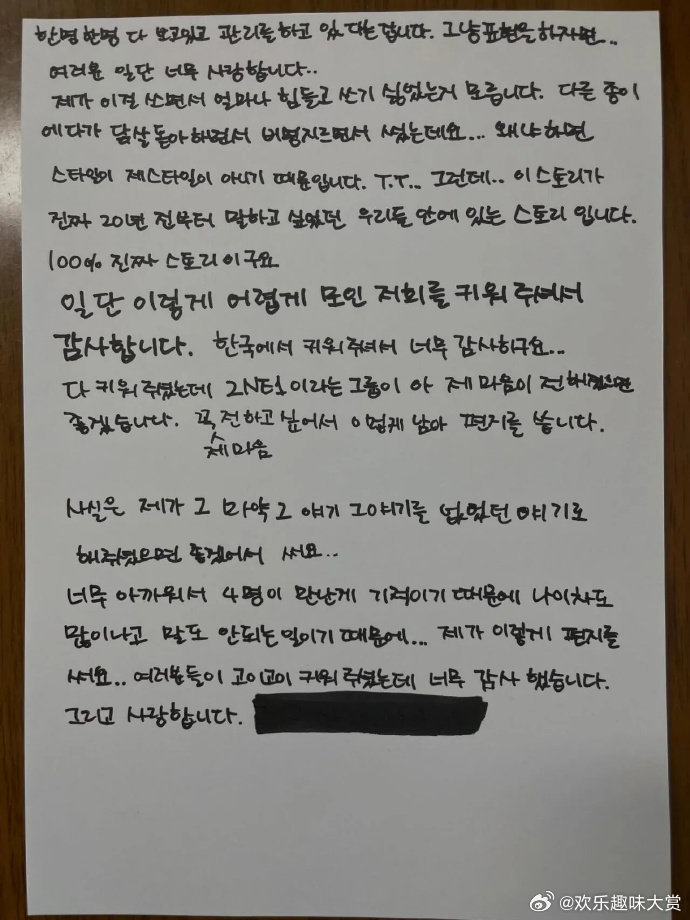 한명 한명 다 보고있고 관리를하고 있다는겁니다. 그냥표현을하자면..
여러분 일단 너무 사랑합니다..
제가 이걸 쓰면서 얼마나 힘들고 쓰기 싫었는지 모릅니다. 다른 종이
에다가 닭살 돋아하면서 비명지르면서 썼는데요... 왜냐하면
스타일이 제스타일이 아니기 때문입니다. T.T... 그런데.. 이스토리가
진짜 20년 전부터 말하고 싶었던 우리들 안에 있는 스토리 입니다.
100% 진짜 스토리이구요
일단 이렇게 어렵게 모인 저희를 키워주셔서
감사합니다. 한국에서 키워주셔서 너무 감사하구요...
다 키워주셨는데 2NE1이라는 그룹이 아 제 마음이 전해졌으면
좋겠습니다. 꼭 전하고 싶어서 이렇게 남아 편지를 씁니다.
제마음
사실은 제가 그 마약 그 얘기 그얘기를 없었던 얘기로
해주셨으면 좋겠어서 써요..
너무 아까워서 4명이 만난게 기적이기 때문에 나이차도
많이나고 말도 안되는일이기 때문에... 제가 이렇게 편지를
써요.. 여러분들이 고이고이 키워주셨는데 너무 감사 했습니다.
그리고 사랑합니다.
@欢乐趣味大赏